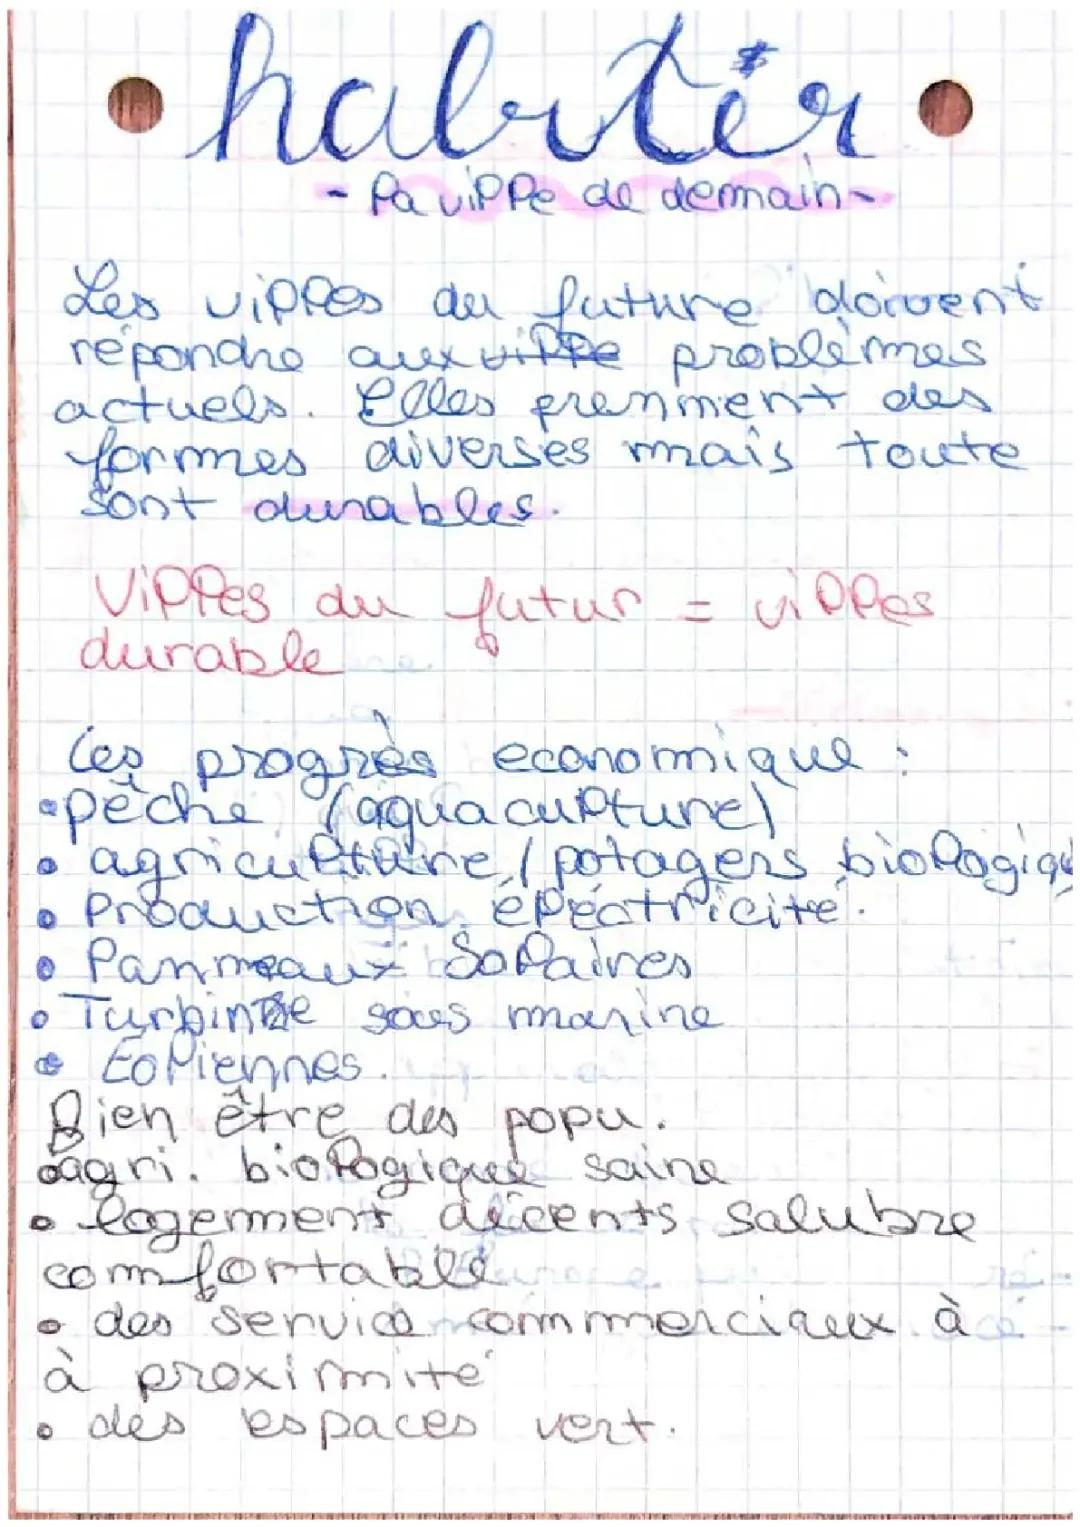 habiter
- la ville de demain -
Les villes du future doivent
répondre aux ville problèmes
actuels. Elles prennment des
formes diverses mais toute
sont durables.
Villes du futur = villes
durable
les progrès economique :
• pêche (aquaculture)
• agriculture / potagers biologiqu
• Production éléctricité.
• Panneaux Solaires
• Turbine sous marine
• Eoliennes.
Bien être des popu.
• agri. biologique saine
• logement décents salubre
comfortable
• des service commerciaux à
à proximité
• des espaces vert.